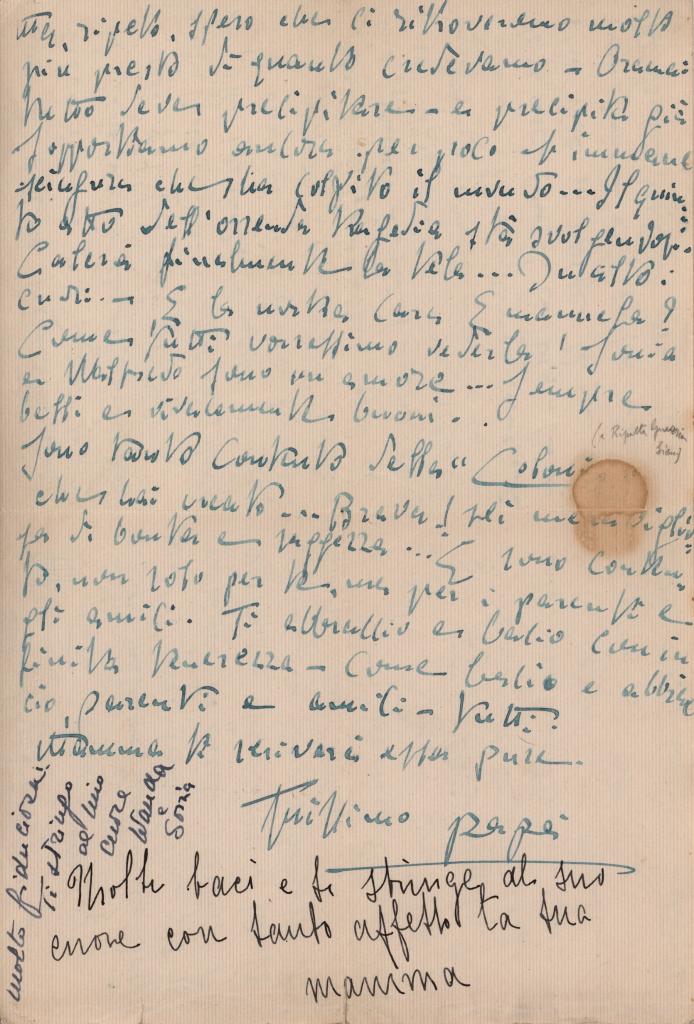 Ma, ripeto, spero che ci ritroveremo molto
più presto di quanto credevamo - Oramai
tutto deve precipitare - e precipita già
Sopportiamo ancora per poco l'immane
sciagura che ha colpito il mondo... Il quin-
to atto dell'orrenda tragedia sta svolgendosi.
Calerà finalmente la tela... In alto i
cuori. - E la nostra cara Emanuela?
Come tutti vorressimo vederla! Sonia
e Walfredo sono un amore... Sempre
belli e vivacemente buoni.
(a Ripetta
Sono tanto contento della "Coloni
che hai creato... Brava! Sei meraviglio
sa di bontà e saggezza... E sono conten-
to, non solo per te, ma per i parenti e
gli amici. Ti abbraccio e bacio con in
finita tenerezza - Come bacio e abbrac
cio, parenti e amici - tutti.
Mamma ti scriverà essa pure.
Tuissimo papà
Molti baci e ti stringe al suo
cuore con tanto affetto la tua
mamma
molto fiduciosa.
Ti stringo
al mio
cuore
Wanda
e
Sonia